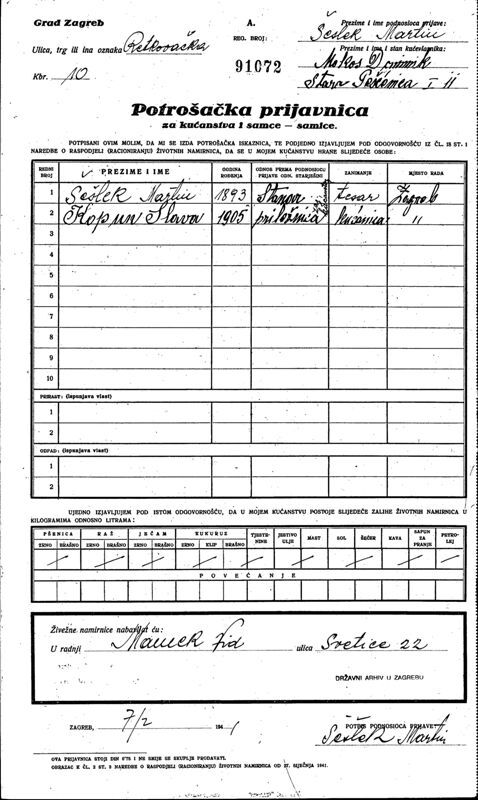 Grad Zagreb
Ulica, trg ili ina oznaka Retkovačka
Kbr. 10
A.
REG. BROJ:
91072
Prezime i ime podnosioca prijave:
Šešlek Martin
Prezime i ime i stan kućevlasnika:
Mokos Dominik
Stara Pešćenica I 11
Potrošačka prijavnica
za kućanstva i samce — samice.
POTPISANI OVIM MOLIM, DA MI SE IZDA POTROŠAČKA ISKAZNICA, TE PODJEDNO IZJAVLJUJEM POD ODGOVORNOŠĆU IZ ČL. 15 ST. 1
NAREDBE O RASPODJELI (RACIONIRANJU) ŽIVOTNIH NAMIRNICA, DA SE U MOJEM KUĆANSTVU HRANE SLIJEDEĆE OSOBE:
REDNI BROJ PREZIME I IME GODINA ROĐENJA ODNOS PREMA PODNOSIOCU PRIJAVE ODN. STARJEŠINI ZANIMANJE MJESTO RADA
1 Šešlek Martin 1893 Stanar tesar Zagreb
2 Kopun Slava 1905 priložnica kućanica "
3
4
5
6
7
8
9
10
PRIRAST: (ispunjava vlast)
1
2
ODPAD: (ispunjava vlast)
1
2
UJEDNO IZJAVLJUJEM POD ISTOM ODGOVORNOŠĆU, DA U MOJEM KUĆANSTVU POSTOJE SLIJEDEĆE ZALIHE ŽIVOTNIH NAMIRNICA U
KILOGRAMIMA ODNOSNO LITRAMA:
PŠENICA RAŽ JEČAM KUKURUZ TJESTENINE JESTIVO ULJE MAST SOL ŠEĆER KAVA SAPUN ZA PRANJE PETROLEJ
ZRNO BRAŠNO ZRNO BRAŠNO ZRNO BRAŠNO ZRNO KLIP BRAŠNO
POVEĆANJE
Živežne namirnice nabavljat ću:
U radnji Mamek Žid ulica Svetice 22
DRŽAVNI ARHIV U ZAGREBU
ZAGREB, 7/2 1941
POTPIS PODNOSIOCA PRIJAVE:
Šešlek Martin
OVA PRIJAVNICA STOJI DIN 0'75 I NE SMIJE SE SKUPLJE PRODAVATI.
OBRAZAC K ČL. 2 ST. 2 NAREDBE O RASPODJELI (RACIONIRANJU) ŽIVOTNIH NAMIRNICA OD 27. SIJEČNJA 1941.